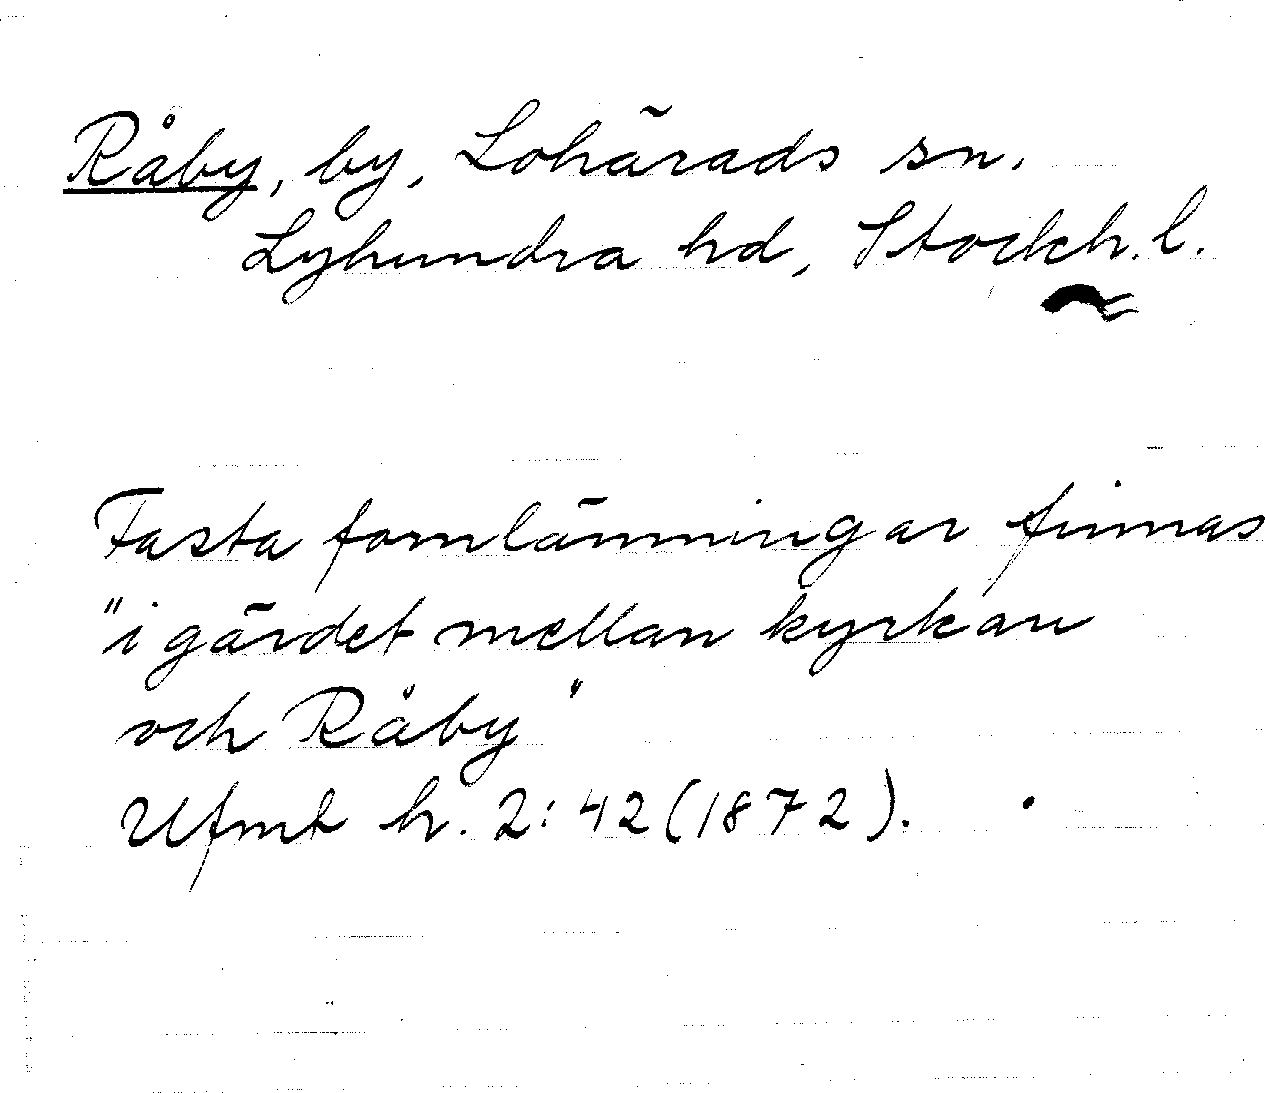 Råby, by, Lohärads sn.
Lyhundra hd, Stockh. l.
Fasta fornlämningar finnas
"i gärdet mellan kyrkan
och Råby"
Ufmt h. 2:42 (1872).